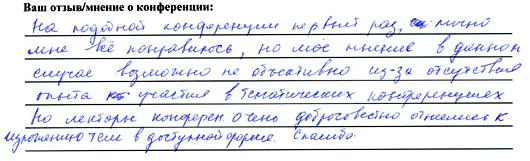 Ваш отзыв/мнение о конференции:
На подобной конференции первый раз, лично
мне всё понравилось, но моё мнение в данном
случае возможно не объективно из-за отсутствия
опыта участия в тематических конференциях
Но лекторы конферен очень добросовестно отнеслись к
изложению тем в доступной форме. Спасибо